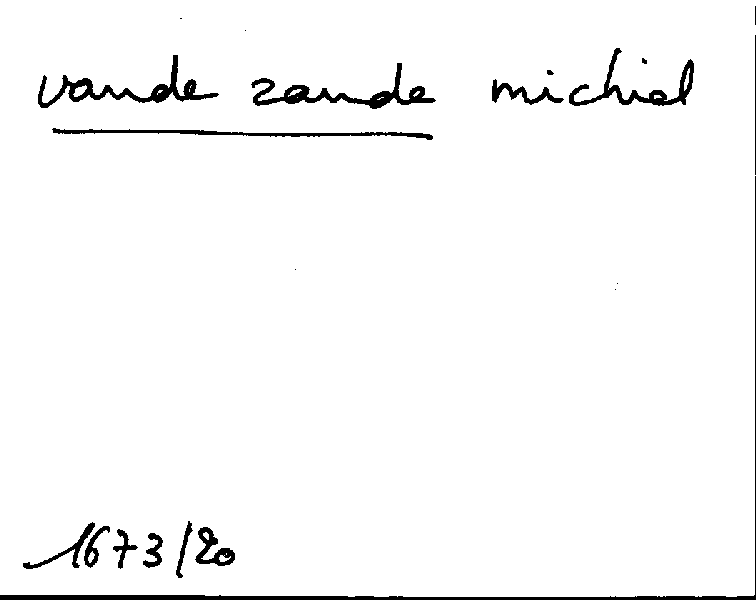 vande zande michiel
1673/20